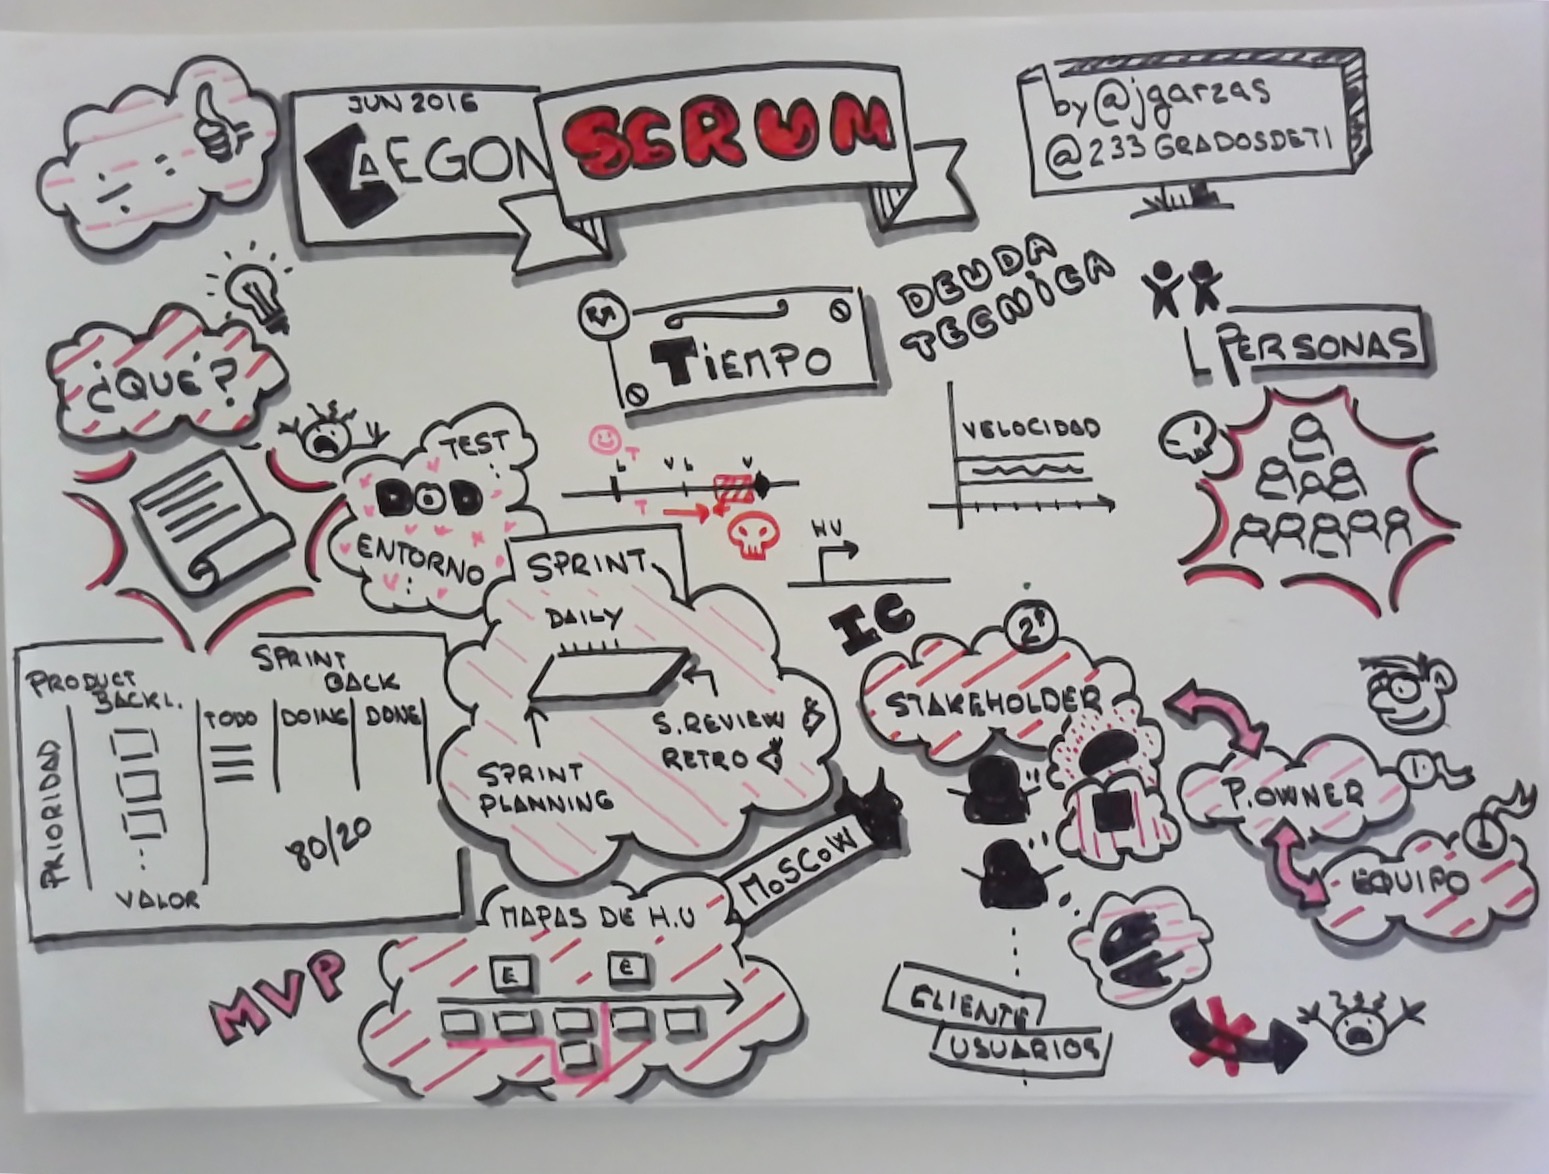 JUN 2016
AEGON
SCRUM
by @jgarzas
@233GRADOSDETI
¿QUÉ?
TIEMPO
DEUDA
TECNICA
PERSONAS
TEST
DOD
ENTORNO
T
L V L V
T
VELOCIDAD
HU
IC
SPRINT
DAILY
S.REVIEW
RETRO
SPRINT
PLANNING
PRODUCT
BACKL.
PRIORIDAD
VALOR
SPRINT
BACK
TODO DOING DONE
80/20
MoSCoW
MAPAS DE H.U
E E
MVP
STAKEHOLDER
P.OWNER
1
EQUIPO
CLIENTE
USUARIOS